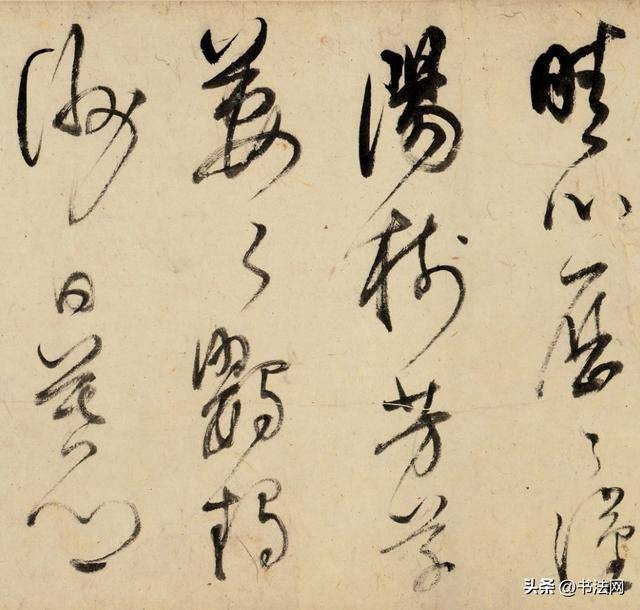 晴川歷々漢
陽樹芳草
萋々鸚鵡
洲日暮鄉
头条 @书法网